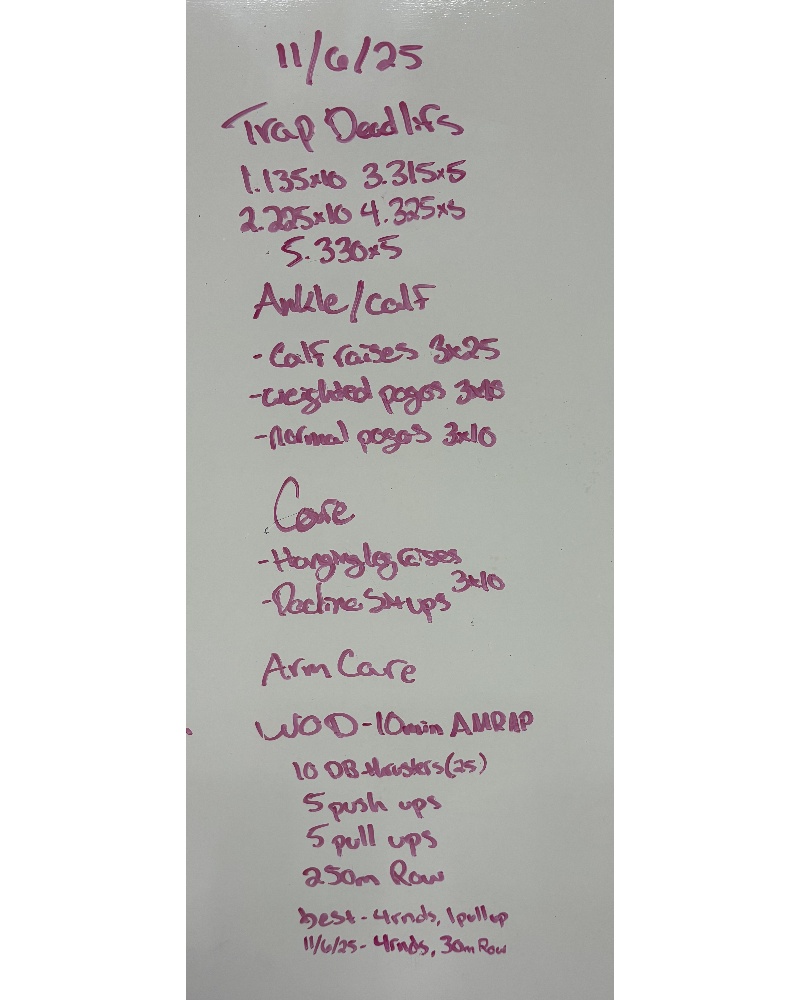 11/6/25
Trap Deadlifs
1.135x10 3.315x5
2.225x10 4.325x5
5.330x5
Ankle/calf
-Calf raises 3x25
-weighted pogos 3x10
-normal pogos 3x10
Core
-Hanging leg raises
3x10
-Decline Sit ups
Arm Care
WOD-10min AMRAP
10 DB thrusters(25)
5 push ups
5 pull ups
250m Row
best-4rnds, 1pullup
11/6/25-4rnds, 30m Row